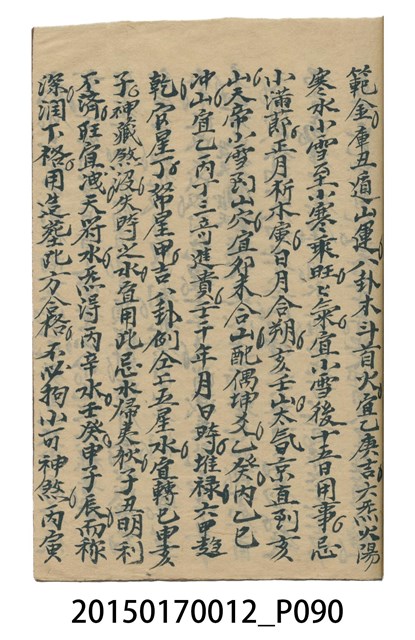 範金庫丑遁山運八卦木斗首火宜乙庚吉六氣火陽
寒水小雪至小寒乘旺之氣宜小雪後十五日用事忌
小滿即正月祈木寅日月合朔亥壬山太氣京直到亥
山天帝小雪到山宜卯未合山配偶坤艮乙癸丙乙巳
冲山宜乙丙丁三奇進貴士千年月日時堆祿六甲趨
乾官星丁帑星甲吉八卦例仝上五星水宿轉巳申亥
子神藏煞沒失時之水宜用此忌水歸美秋子丑明利
不濟旺宜洩天符水氣得丙辛水壬癸申子辰而稱
深潤下格用造葬此方合格不必拘小可神煞丙寅
20150170012_P090